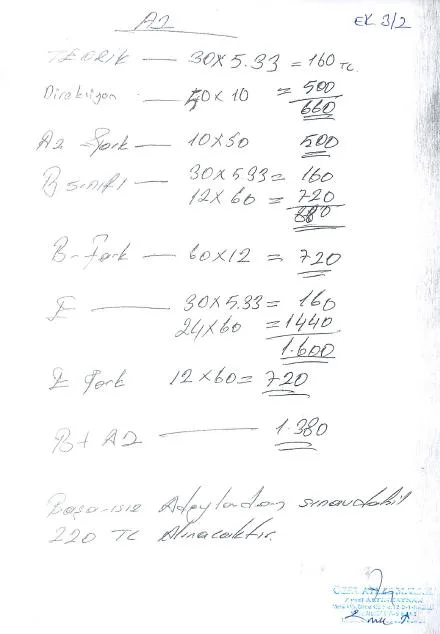 A2
EK 3/2
TEORİK — 30x5.33 = 160 TC.
Direksiyon — 10x10 = 500
660
A2 Fark — 10x50 500
B sınıfı — 30x533 = 160
12x60 = 720
880
B-Fark — 60x12 = 720
E — 30x5.33 = 160
24x60 = 1440
1.600
E Fark 12x60 = 720
B+A2 — 1.380
Başarısız Adaylardan sınavdahil
220 TC Alınacaktır.